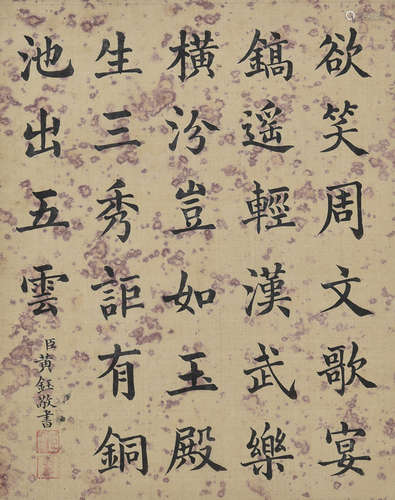 欲笑周文歌宴
鎬遥輕漢武樂
橫汾豈如王殿
生三秀詎有銅
池出五雲
臣黃鈺敬書